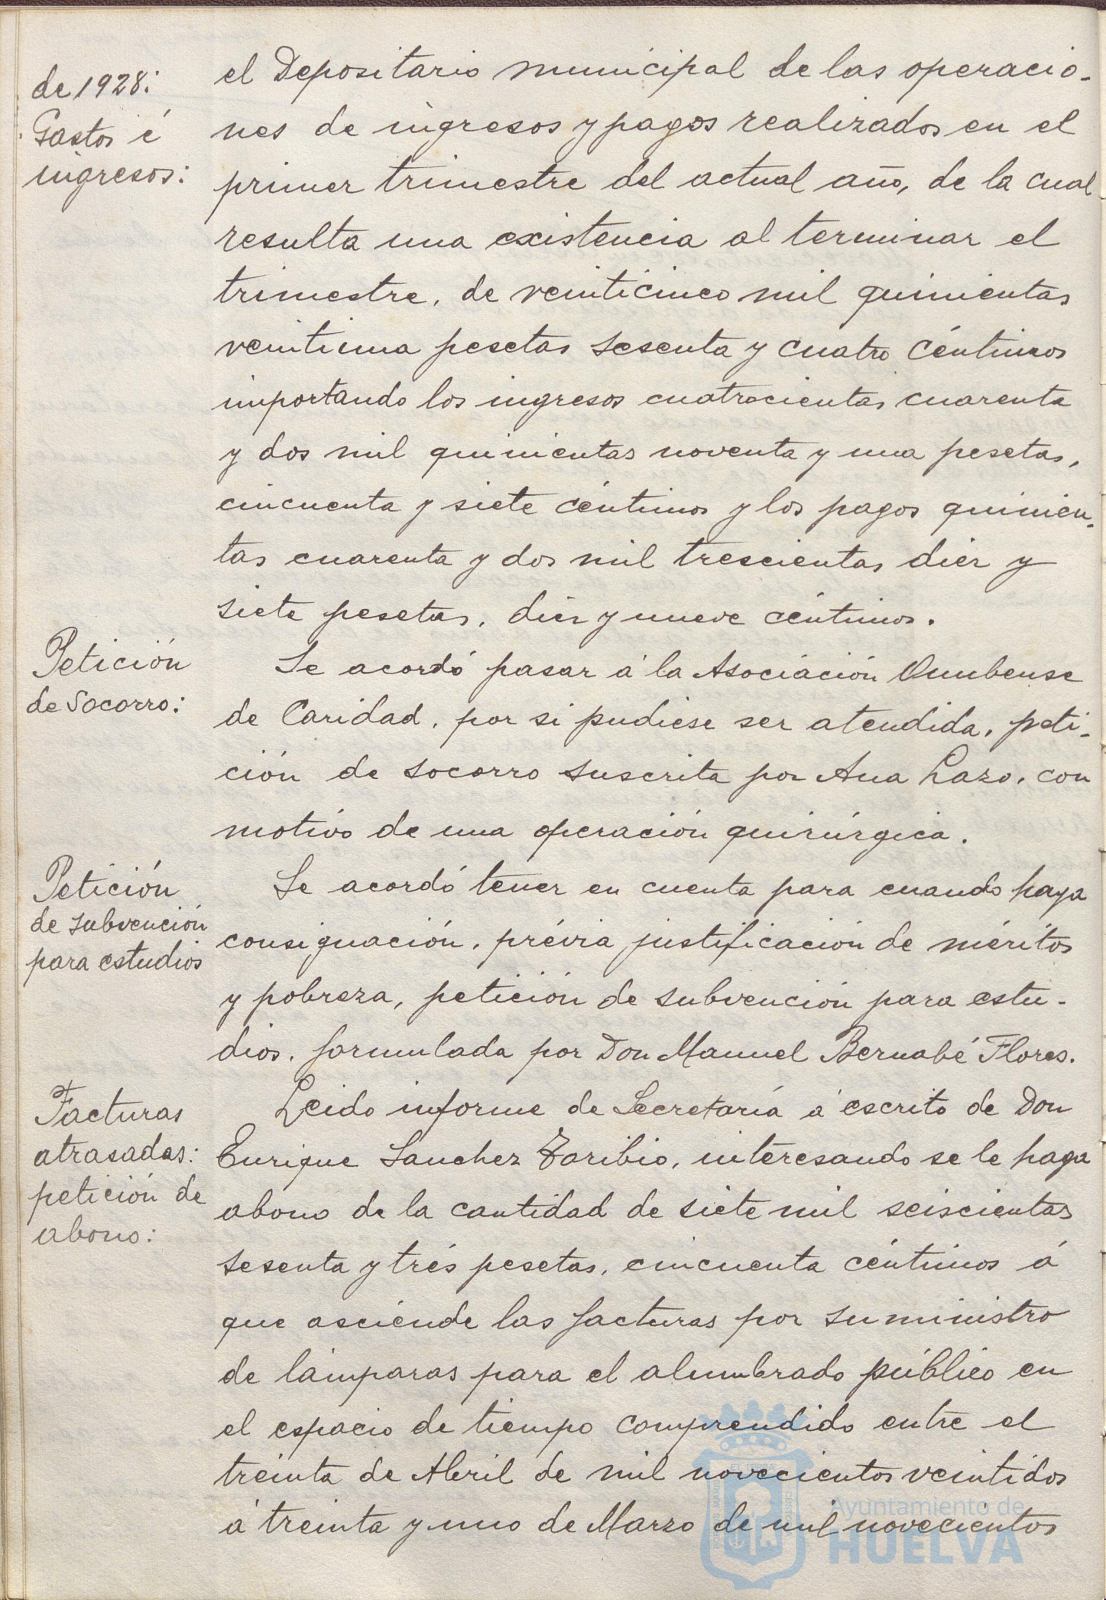 de 1928:
Gastos é
ingresos:
el Depositario municipal de las operacio-
nes de ingresos y pagos realizados en el
primer trimestre del actual año, de la cual
resulta una existencia al terminar el
trimestre, de veinticinco mil quinientas
veintiuna pesetas sesenta y cuatro céntimos
importando los ingresos cuatrocientas cuarenta
y dos mil quinientas noventa y una pesetas,
cincuenta y siete céntimos y los pagos quinien-
tas cuarenta y dos mil trescientas diez y
siete pesetas, diez y nueve céntimos.
Petición
de Socorro:
Se acordó pasar á la Asociación Onubense
de Caridad, por si pudiese ser atendida, peti-
ción de socorro suscrita por Ana Lazo, con
motivo de una operación quirúrgica.
Petición
de subvención
para estudios
Se acordó tener en cuenta para cuando haya
consignación, prévia justificación de méritos
y pobreza, petición de subvención para estu-
dios, formulada por Don Manuel Bernabé Flores.
Facturas
atrasadas:
petición de
abono:
Leido informe de Secretaría á escrito de Don
Enrique Sanchez Toribio, interesando se le haga
abono de la cantidad de siete mil seiscientas
sesenta y trés pesetas, cincuenta céntimos á
que asciende las facturas por suministro
de lámparas para el alumbrado público en
el espacio de tiempo comprendido entre el
treinta de Abril de mil novecientos veintidos
á treinta y uno de Marzo de mil novecientos
Ayuntamiento de
HUELVA